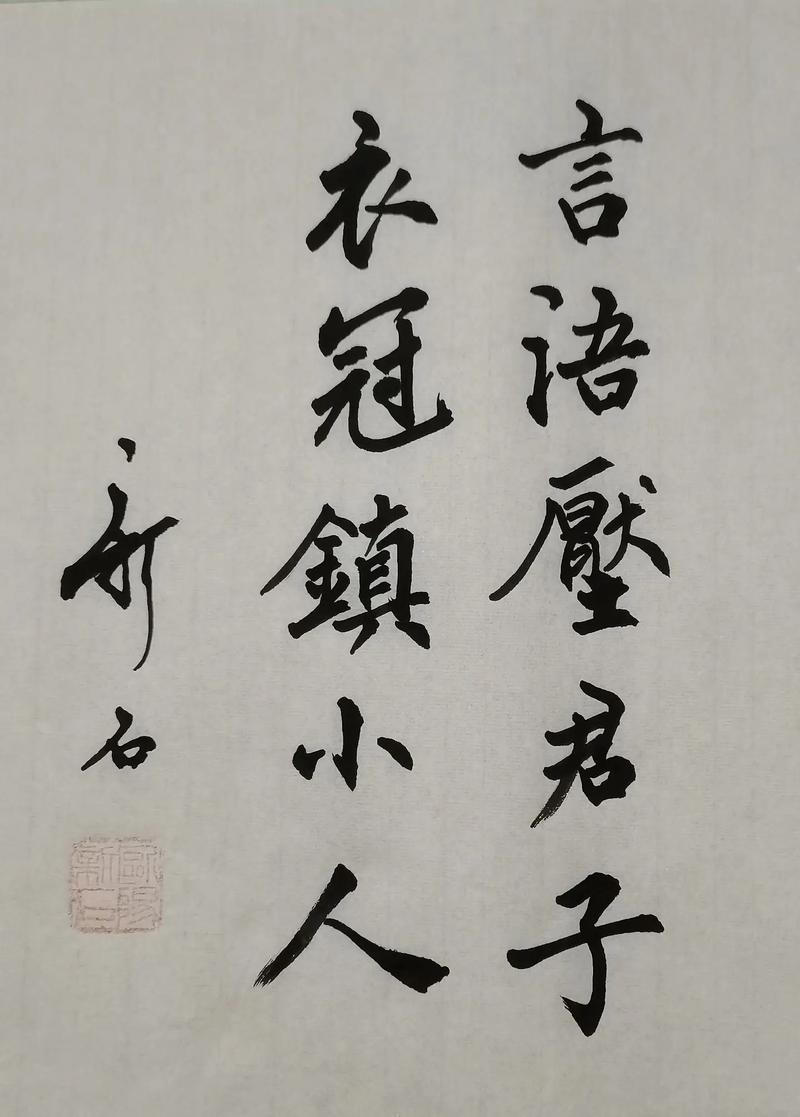 言語壓君子
衣冠鎮小人
新石